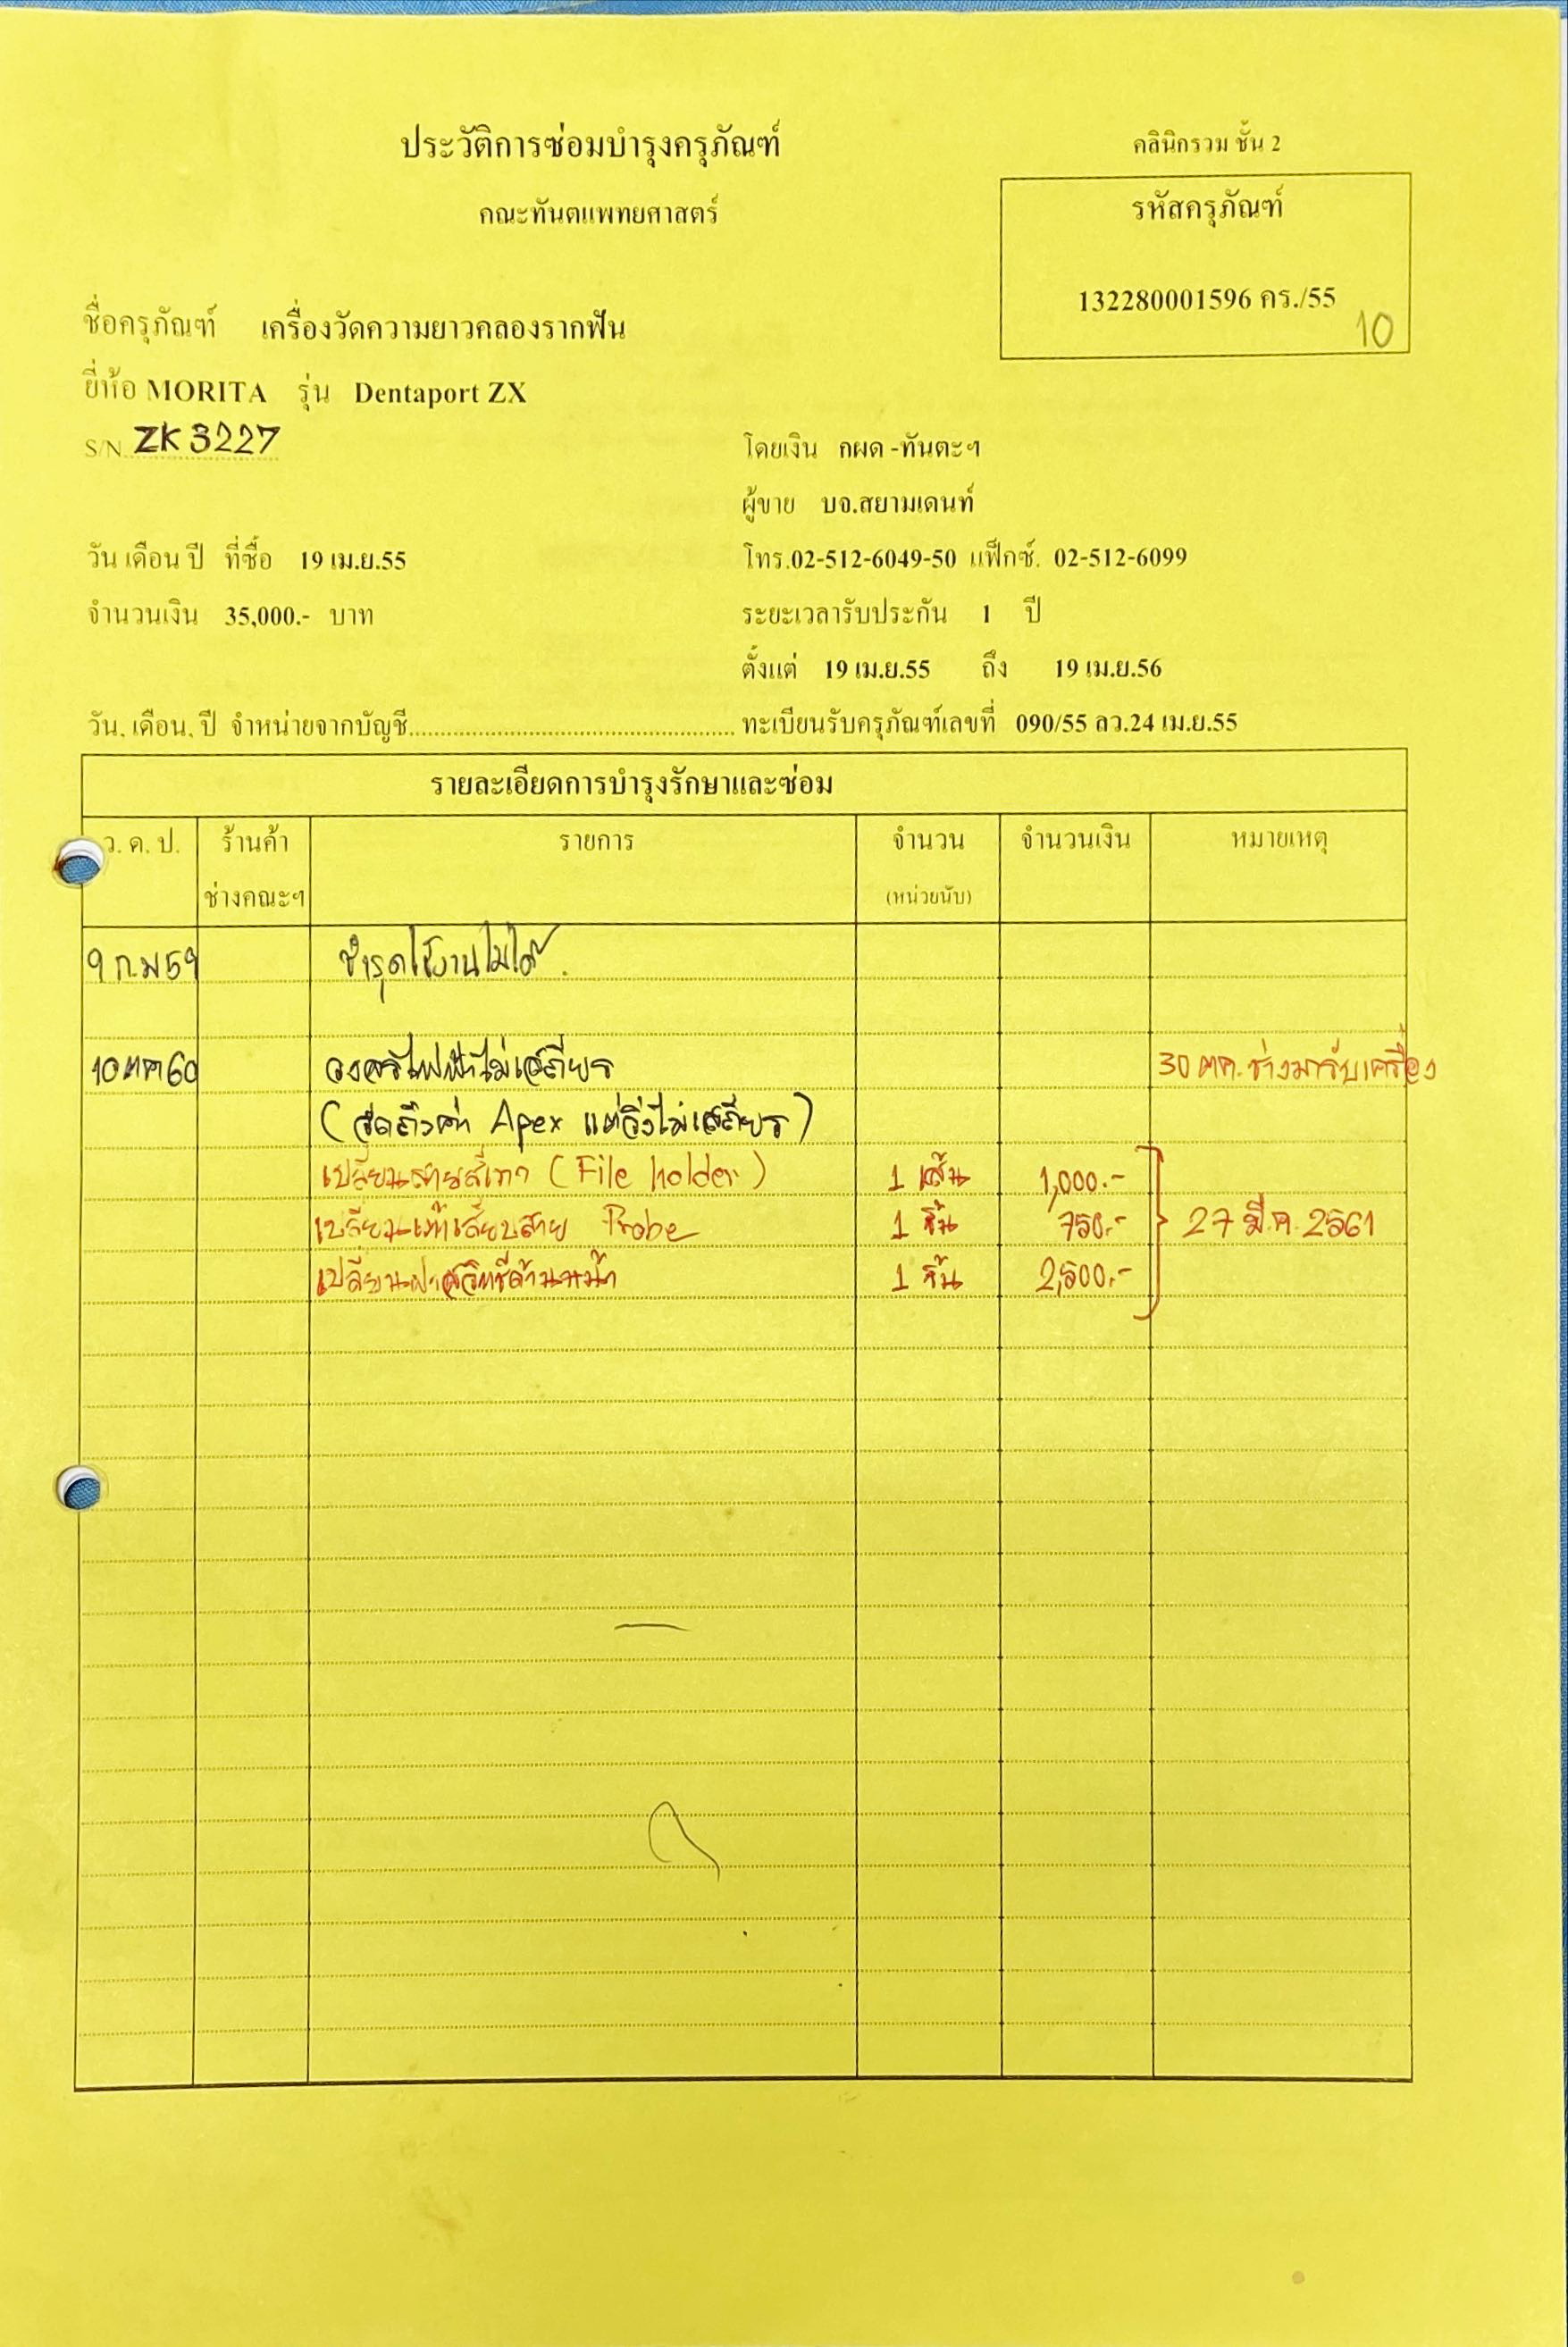 ประวัติการซ่อมบำรุงครุภัณฑ์
คลินิกรวม ชั้น 2
คณะทันตแพทยศาสตร์
รหัสครุภัณฑ์
132280001596 คร./55
10
ชื่อครุภัณฑ์ เครื่องวัดความยาวคลองรากฟัน
ยี่ห้อ MORITA รุ่น Dentaport ZX
S/N. ZK 3227
โดยเงิน กผด -ทันตะฯ
ผู้ขาย บจ.สยามเดนท์
วัน เดือน ปี ที่ซื้อ 19 เม.ย.55 โทร.02-512-6049-50 แฟ็กซ์. 02-512-6099
จำนวนเงิน 35,000.- บาท ระยะเวลารับประกัน 1 ปี
ตั้งแต่ 19 เม.ย.55 ถึง 19 เม.ย.56
วัน, เดือน, ปี จำหน่ายจากบัญชี.................................................... ทะเบียนรับครุภัณฑ์เลขที่ 090/55 ลว.24 เม.ย.55
รายละเอียดการบำรุงรักษาและซ่อม
ว. ด. ป. ร้านค้า รายการ จำนวน จำนวนเงิน หมายเหตุ
ช่างคณะฯ (หน่วยนับ)
9 ก.พ 59 ชำรุดใช้งานไม่ได้.
10 ตค 60 วงจรไฟฟ้าไม่เสถียร 30 ตค. ช่างมารับเครื่อง
(วัดถึงค่า Apex แต่วิ่งไม่เสถียร)
เปลี่ยนสายสีเทา (File holder) 1 เส้น 1,000.-
เปลี่ยนเต้าเสียบสาย Probe 1 ชิ้น 750.- 27 มี.ค. 2561
เปลี่ยนฝาสวิทซ์ด้านหน้า 1 ชิ้น 2,500.-